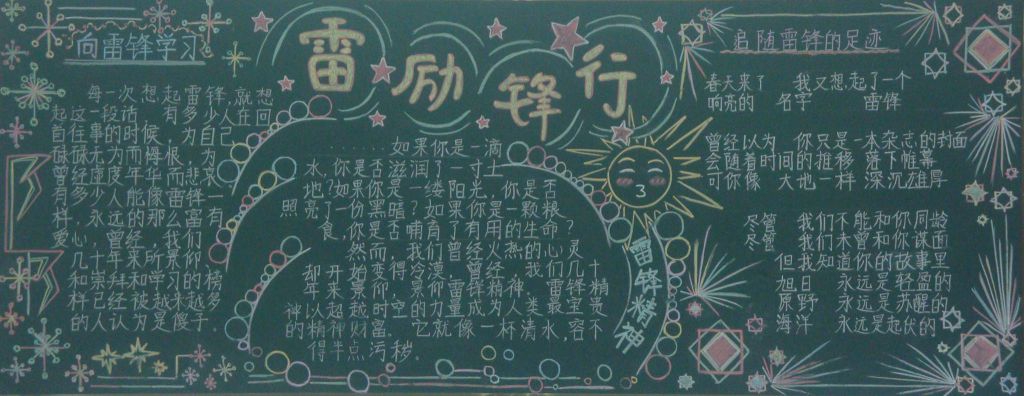 向雷锋学习
每一次想起雷锋,就想
起这一段话 有多少人在回
首往事的时候,为自己
碌碌无为而悔恨,为
样,永远的那么富有
爱心,曾经,我们
的人认为是傻子.
雷励锋行
如果你是一滴
水,你是否滋润了一寸土
地?如果你是一缕阳光,你是否
照亮了一份黑暗?如果你是一颗粮
食,你是否哺育了有用的生命?
然而,我们曾经火热的心灵
却开始变得冷漠,曾经我们几十
的精神财富.它就像一杯清水,容不
得半点污秽.
雷锋精神
追随雷锋的足迹
春天来了 我又想起了一个
响亮的 名字 雷锋
曾经以为 你只是一本杂志的封面
会随着时间的推移 落下帷幕
可你像 大地一样 深沉雄厚
尽管 我们不能和你同龄
尽管 我们未曾和你谋面
但我知道你的故事里
旭日 永远是轻盈的
原野 永远是苏醒的
海洋 永远是起伏的